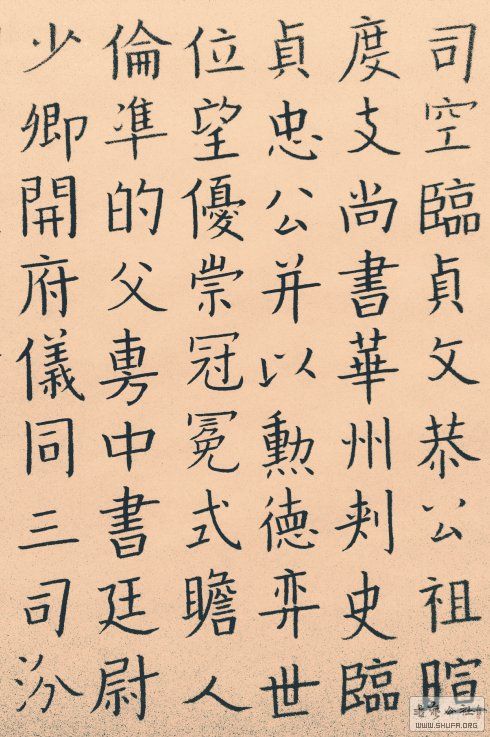 司空臨貞文恭公祖暄
度支尚書華州刾史臨
貞忠公并以勳德弈世
位望優崇冠冕式瞻人
倫凖的父旉中書廷尉
少卿開府儀同三司汾
WWW.SHUFA.ORG